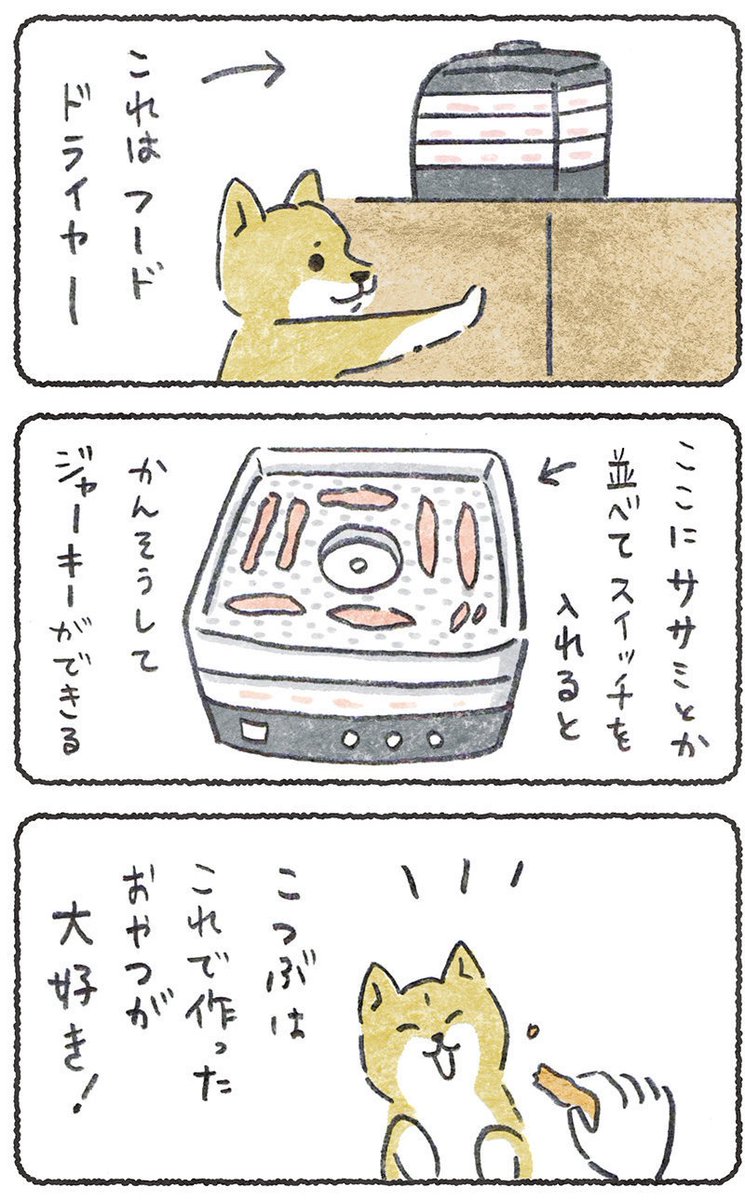 これはフード
ドライヤー
ここにササミとか
並べてスイッチを
入れると
かんそうして
ジャーキーができる
こつぶは
これで作った
おやつが
大好き!